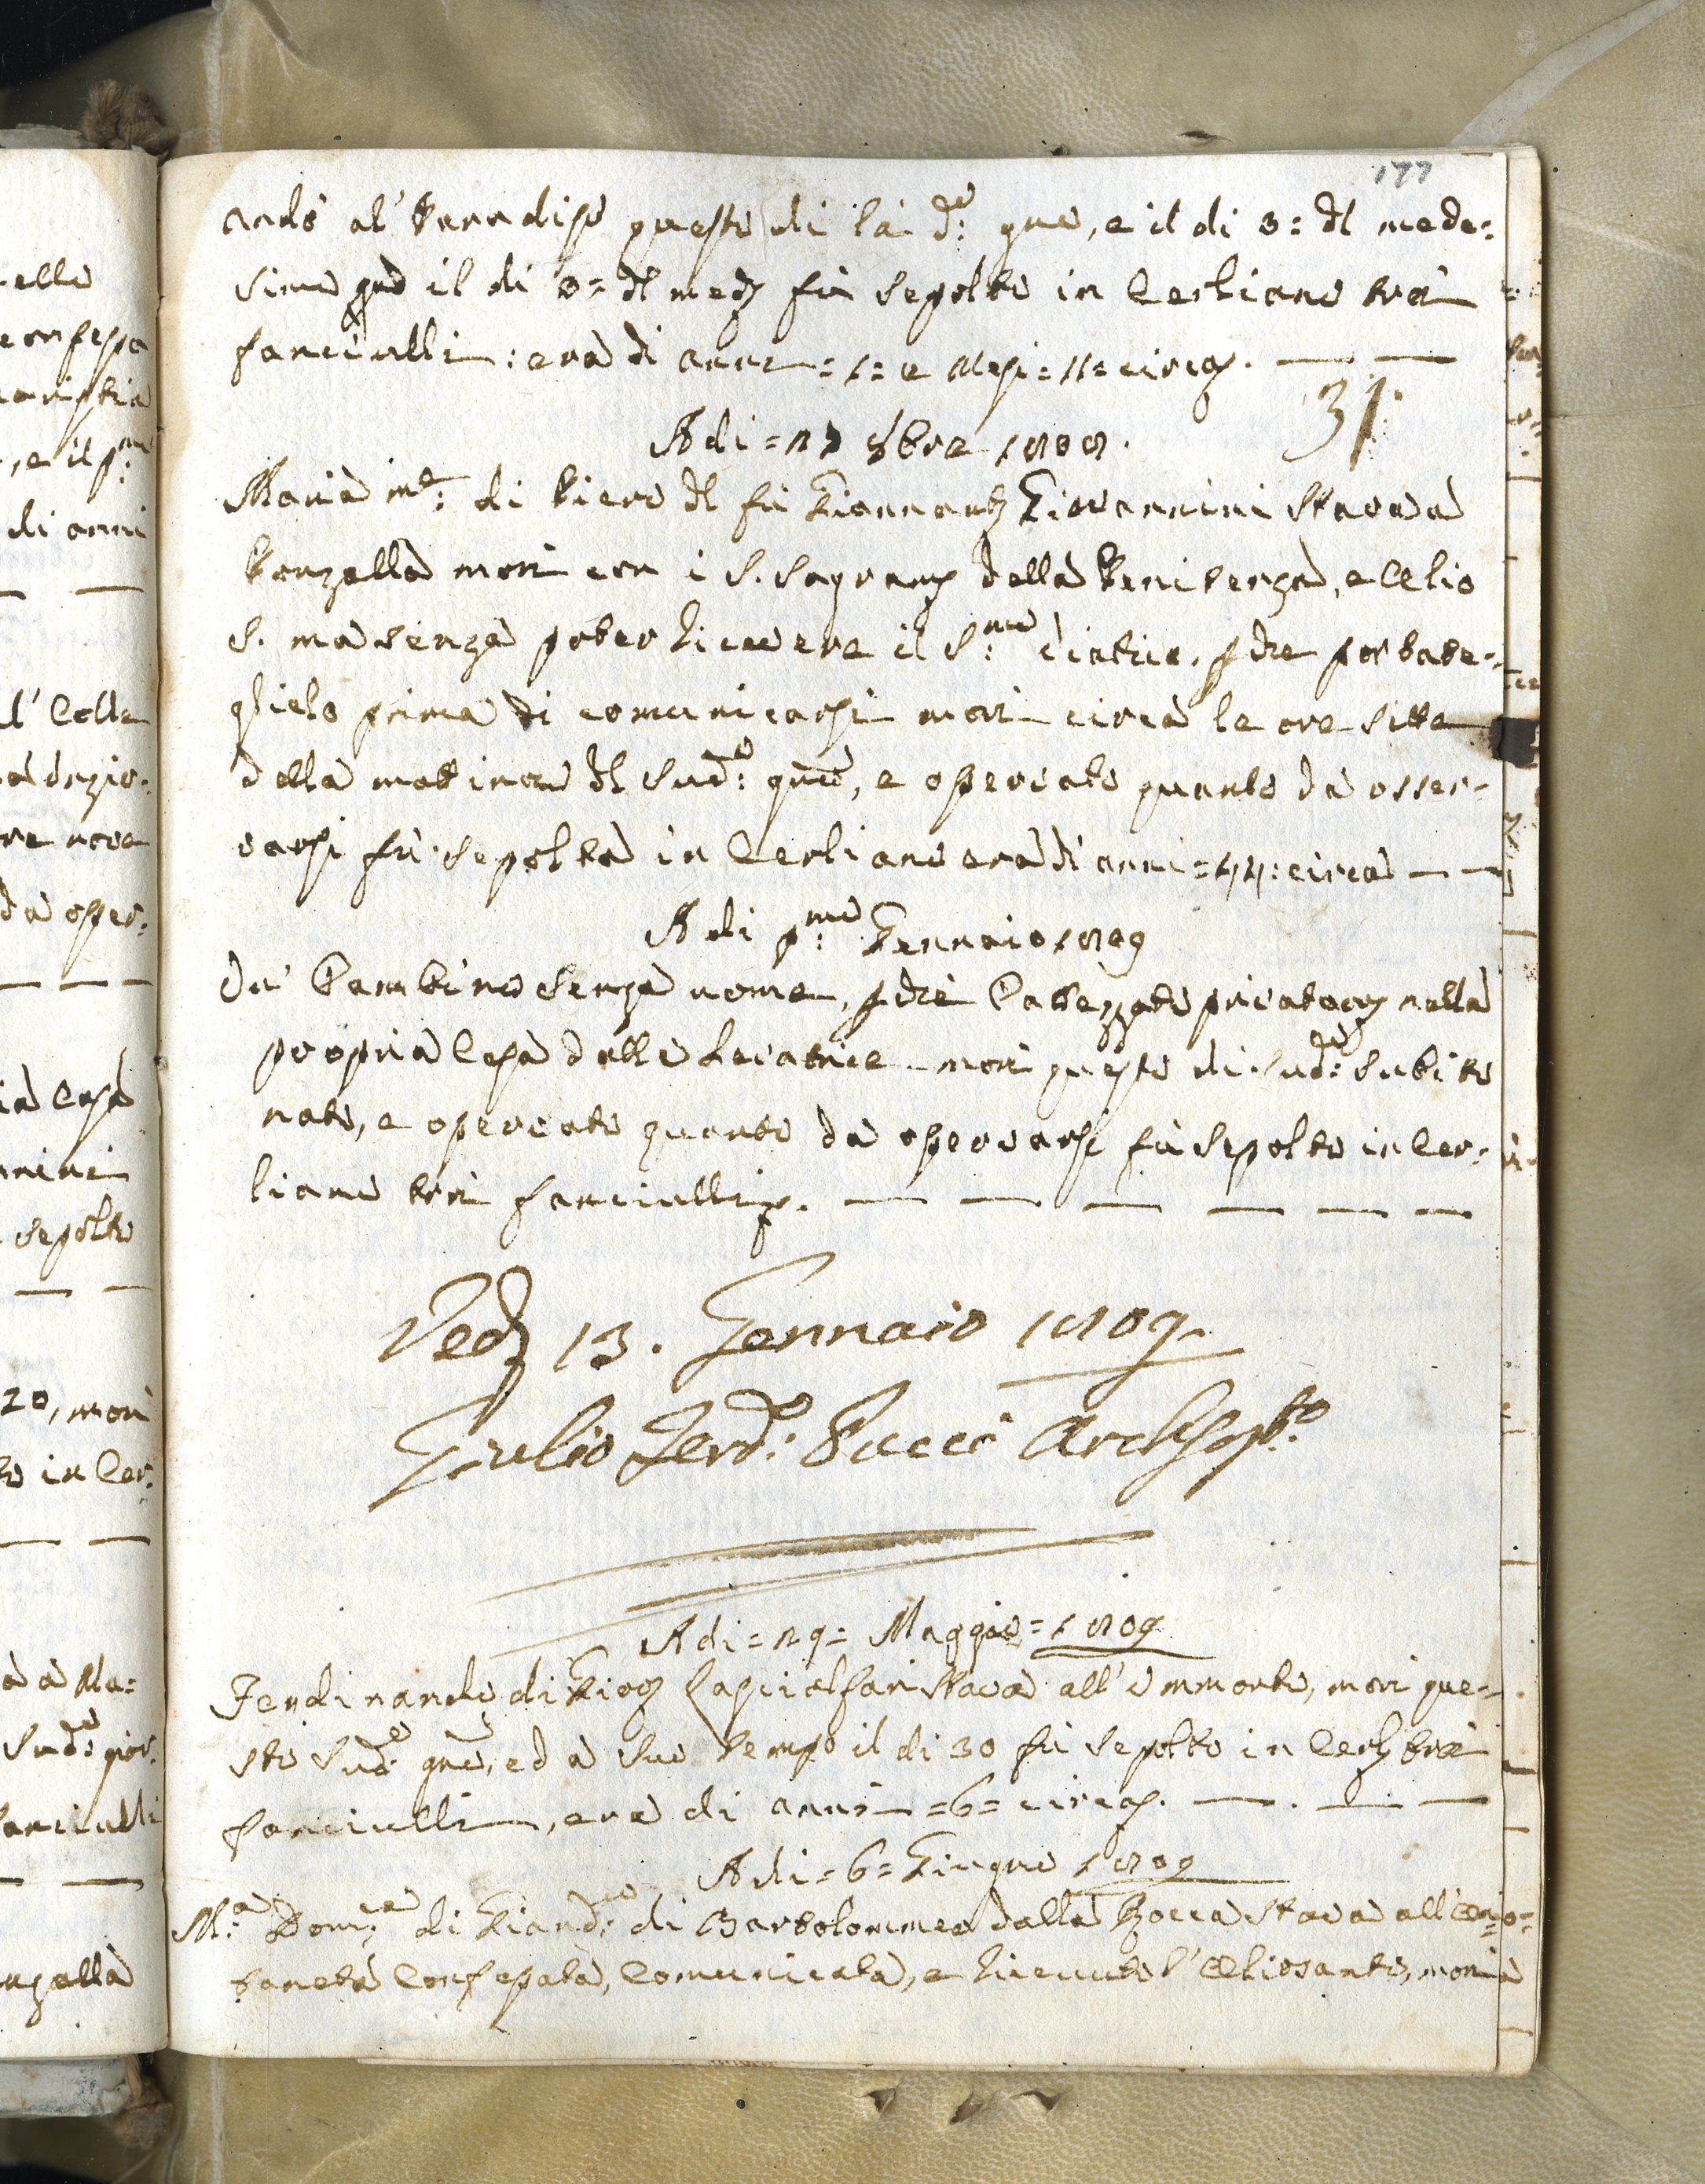 177
andò al' Paradiso questo di là d:o gno, e il di 3= dl mede=
simo gno il di 3= dl med fù sepolto in Cerliano trà
fanciulli: era di anni=1= e Mesi=11= circa.
31
Adi = 27 8bre 1708.
Maria m:e di Piero dl fù Giannant Giovannini stava a
Ponzalla mori con i S. Sagram della Penitenza, e Olio
S. ma senza poter ricevere il S:mo Viatico, pche portato-
glielo prima di comunicarsi mori circa le ore sette
della mattina dl Sud:o gno, e osservato quanto dà osser-
varsi fù sepolta in Cerliano era di anni=44: circa
Adi p:mo Gennaio 1709
Un Bambino senza nome, pche Battezzato privatam nella
propria Casa dalla Levatrice mori questo di Sud:o subito
nato, e osservato quanto dà osservarsi fù sepolto in Cer-
liano trà fanciulli.
Ved 13. Gennaio 1709.
Giulio Ferd:o Pucci
Adi = 29= Maggio = 1709
Ferdinando di Gio stava all' mori que-
sto Sud:o gno, ed à suo tempo il di 30 fù sepolto in Cerl trà
fanciulli, era di anni =6= circa.
Adi = 6= Giugno 1709
M:a Dom:ca di Giand: di Bartolommeo dalla Rocca stava all'
Confessata, Comunicata, e ricevuto l' Oliosanto, mori à